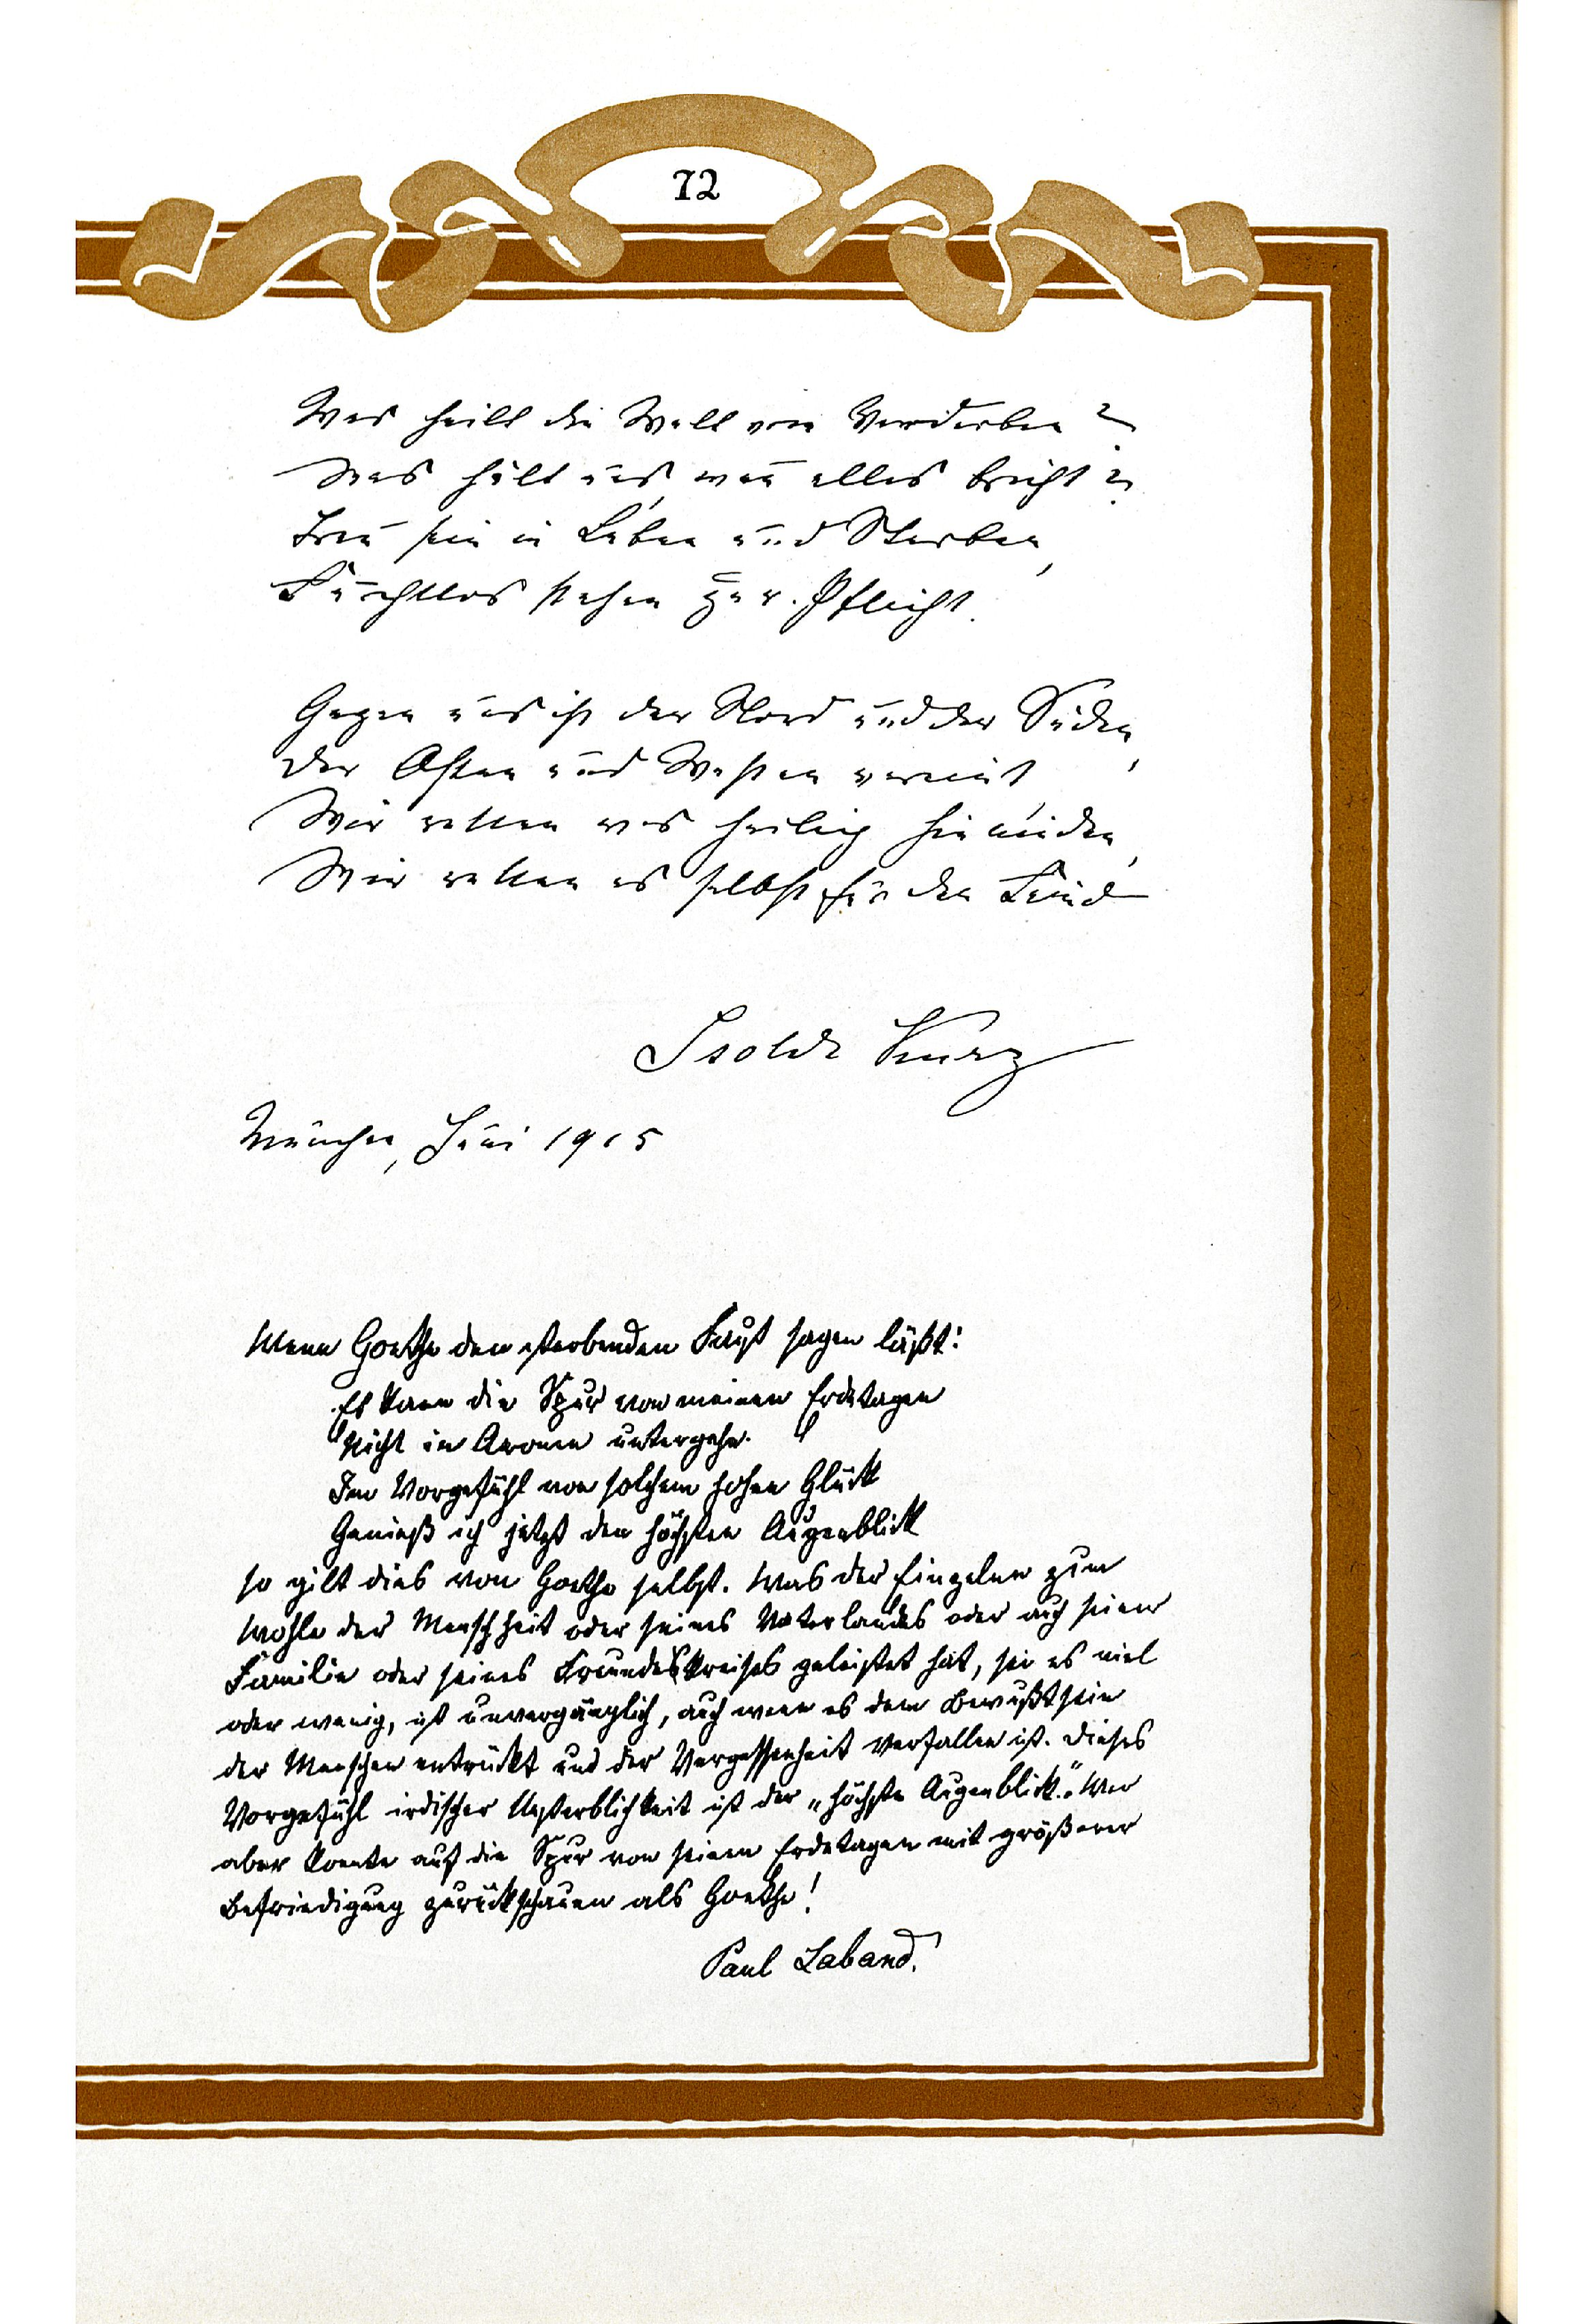 72
Was heilt die Welt vom Verderben?
Was hält uns, wenn alles bricht?
Treu sein in Leben und Sterben,
Furchtlos stehen zur Pflicht.
Gegen uns ist der Nord und der Süden,
Der Osten und Westen vereint,
Wir retten was heilig hienieden,
Wir retten es selbst für den Feind
Isolde Kurz
München, Juni 1915
Wenn Goethe den sterbenden Faust sagen läßt:
Es kann die Spur von meinen Erdetagen
Nicht in Aeonen untergehn.
Im Vorgefühl von solchem hohen Glück
Genieß ich jetzt den höchsten Augenblick
so gilt dies von Goethe selbst. Was der Einzelne zum
Wohle der Menschheit oder seines Vaterlandes oder auch seiner
Familie oder seines Freundeskreises geleistet hat, sei es viel
oder wenig, ist unvergänglich, auch wenn es dem Bewußtsein
der Menschen entrückt und der Vergessenheit verfallen ist. Dieses
Vorgefühl irdischer Unsterblichkeit ist der „höchste Augenblick". Wer
aber konnte auf die Spur von seinen Erdetagen mit größerer
Befriedigung zurückschauen als Goethe!
Paul Laband.